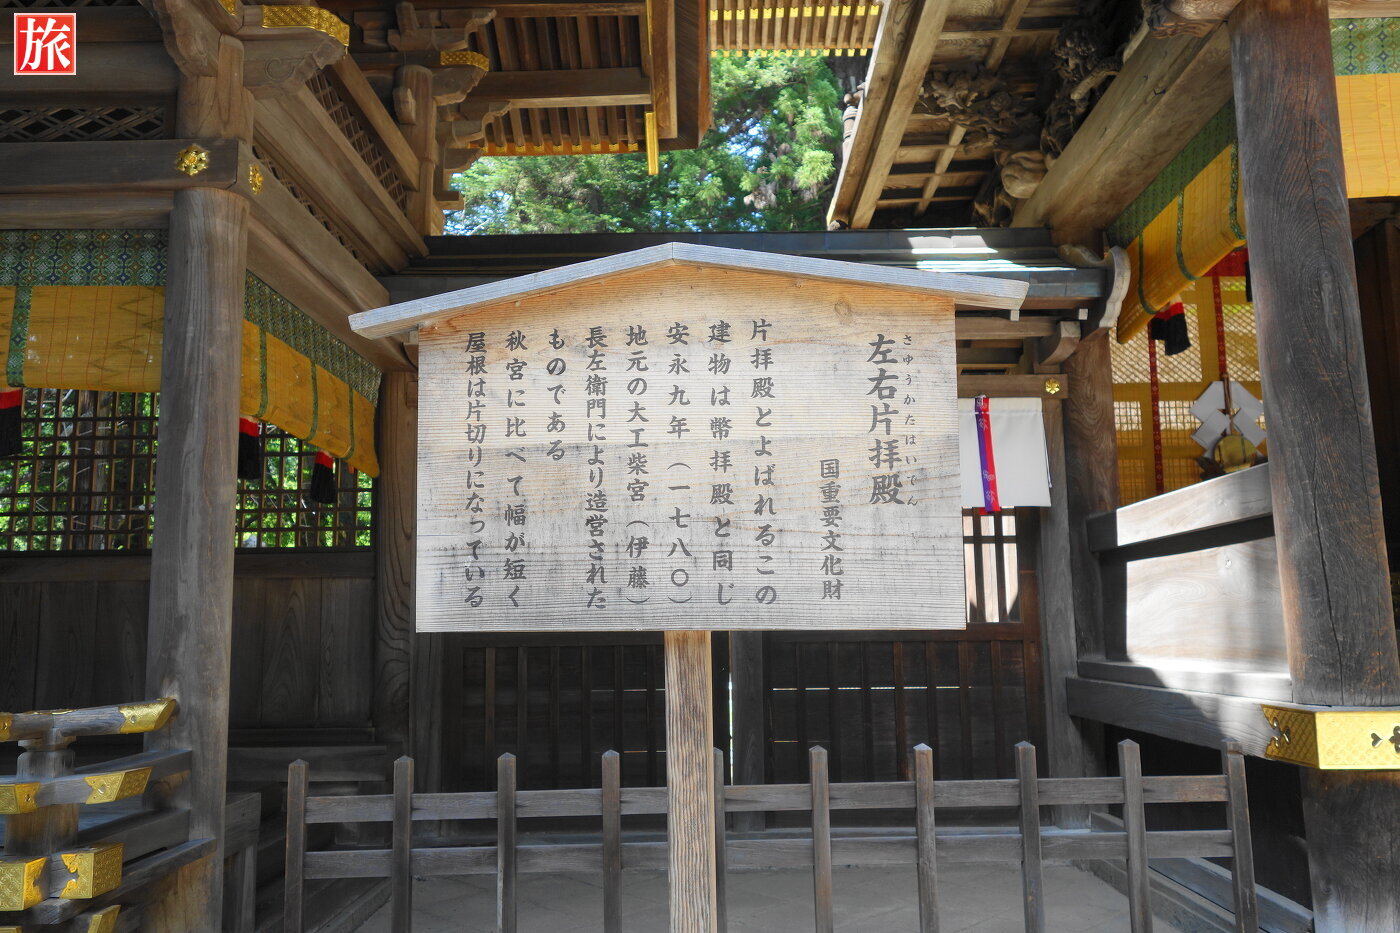 旅
左右片拝殿
さゆうかたはいでん
国重要文化財
片拝殿とよばれるこの
建物は幣拝殿と同じ
安永九年（一七八〇）
地元の大工柴宮（伊藤）
長左衛門により造営された
ものである
秋宮に比べて幅が短く
屋根は片切りになっている